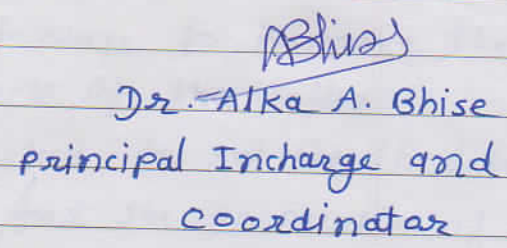 ABhise
Dr. Alka A. Bhise
principal Incharge and
coordinatar